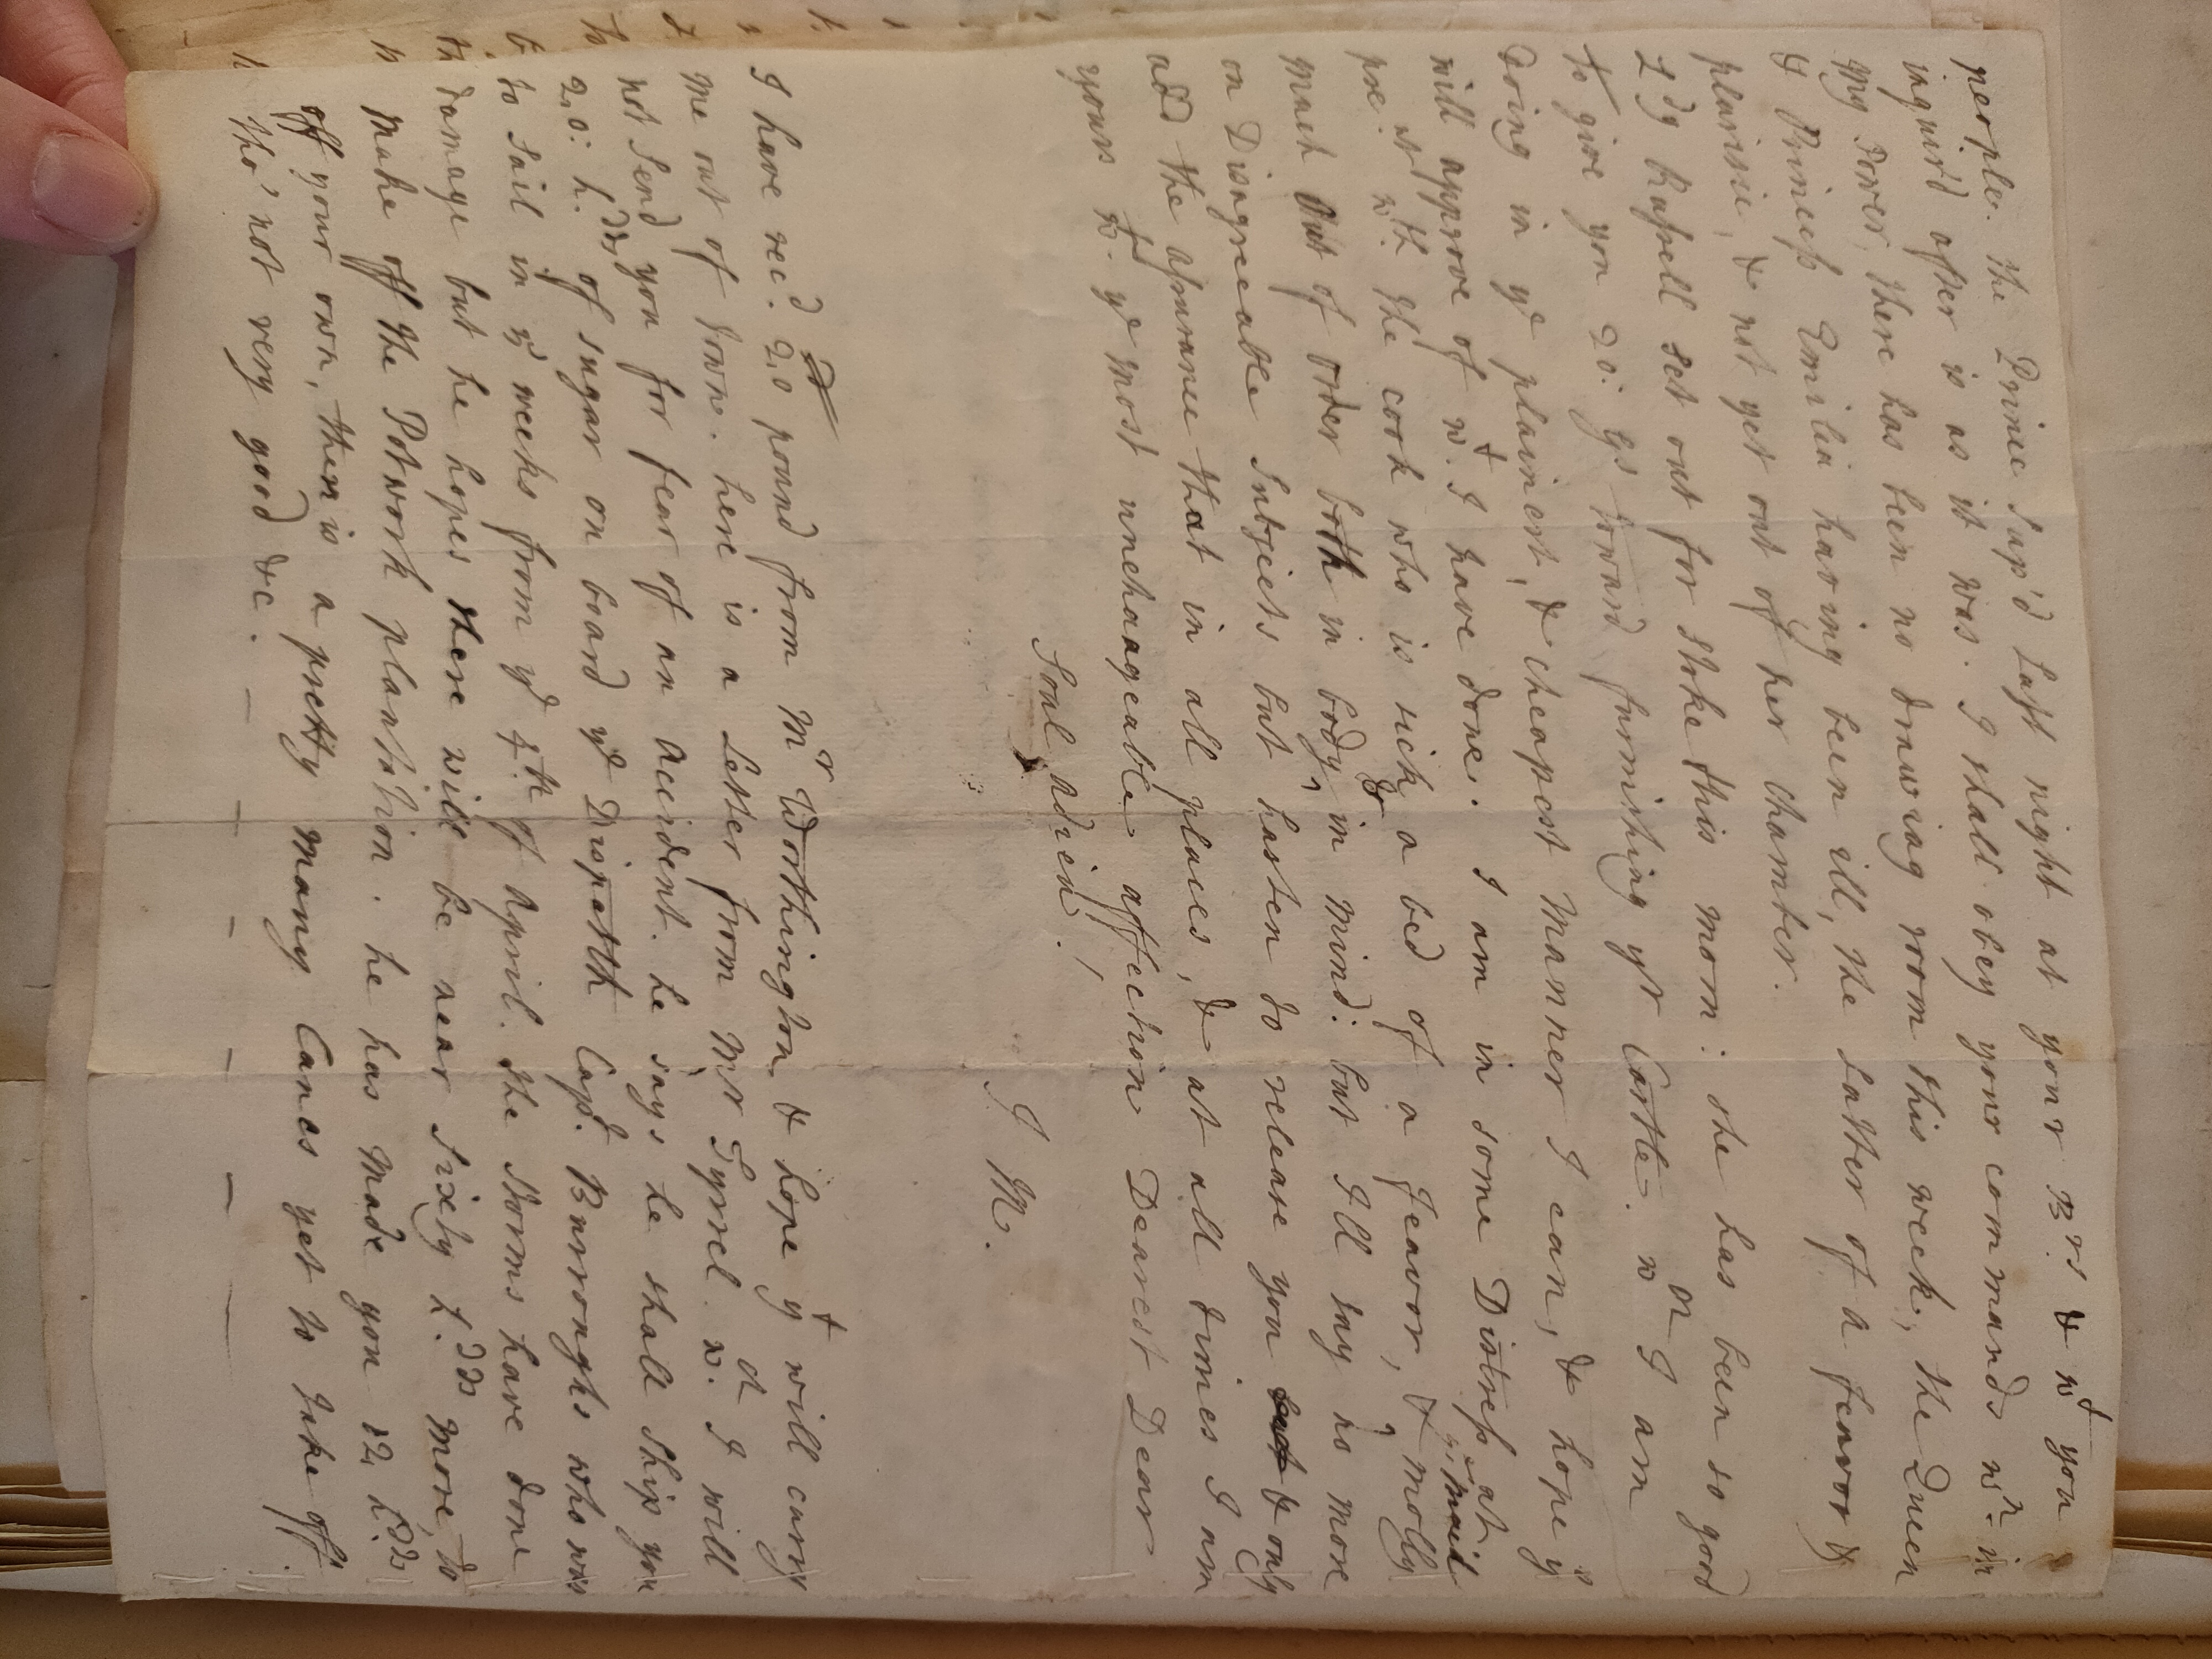 people. the Prince Sup'd Last night at your Brs. & wt you
inquir'd after is as it was. I shall obey your commands wn. in
my Power, there has been no drawing room this week, the Queen
& Princess Emilia having been ill, the Latter of a feavor &
plurisie, & not yet out of her Chamber.
Ldy Russell set out for Stoke this morn: she has been so good
to give you 20: Gs toward furnishing yr Castle. wch I am
Doing in ye plainest, & cheapest manner I can, & hope y
will approve of wt. I have done. I am in some Distress at
pre.nt wth. the cook who is sick a bed of a feavor, & yr maid molly
much out of order both in body & in mind: but I'll say no more
on Disagreeable Subjects but hasten to release you but & only
add the assurance that in all places, & at all times I am
yours wt. ye most unchangeable affection Dearest Dear
Soul, adieu!
J. M.
I have recd. 20 pound from Mr Worthington & hope yt will carry
me out of town. here is a Letter from Mr Tyrrel. wch. I will
not Send you for fear of an Accident. he says he shall Ship you
20: h.dds of sugar on board ye Dispatch Capt. Burroughs who was
to Sail in 5 weeks from ye 4th. of April. the Storms have done
damage but he hopes there will be near Sixty h.dds more, to
make off the Potwork plantation. he has made you 12 h.dds
off your own, there is a pretty many Canes yet to take off.
tho' not very good &c. — — — — — —